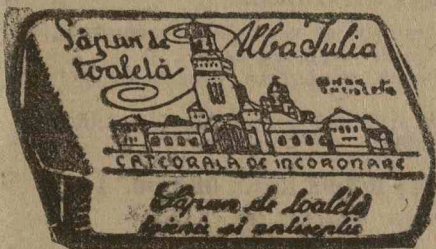 Săpun de
toaletă
Alba Julia
CATEDRALA DE INCORONARE
Săpun de toaletă
și antiseptic